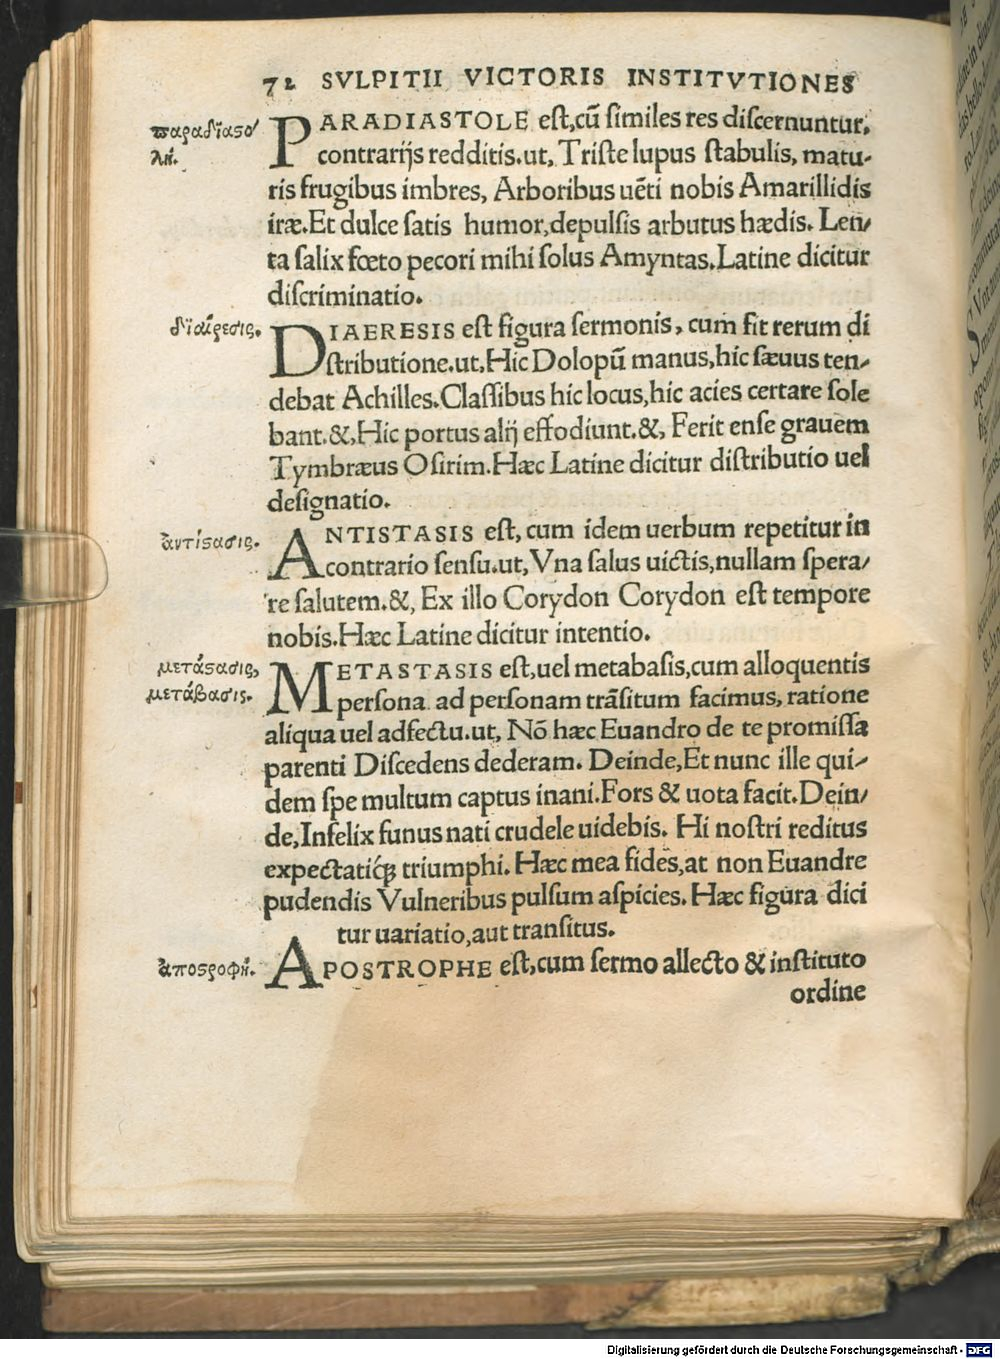 72 SVLPITII VICTORIS INSTITVTIONES
παραδιαστο/
λή.
PARADIASTOLE eſt,cũ ſimiles res diſcernuntur,
contrarijs redditis.ut, Triſte lupus ſtabulis, matu-
ris frugibus imbres, Arboribus uẽti nobis Amarillidis
iræ.Et dulce ſatis humor,depulſis arbutus hædis. Len/
ta ſalix fœto pecori mihi ſolus Amyntas.Latine dicitur
diſcriminatio.
διαίρεσις.
DIAERESIS eſt figura ſermonis, cum fit rerum di
ſtributione.ut,Hic Dolopũ manus,hic ſæuus ten-
debat Achilles.Claſſibus hic locus,hic acies certare ſole
bant.&,Hic portus alij effodiunt.&, Ferit enſe grauem
Tymbræus Oſirim.Hæc Latine dicitur diſtributio uel
deſignatio.
ἀντίστασις.
ANTISTASIS eſt, cum idem uerbum repetitur in
contrario ſenſu.ut, Vna ſalus uictis,nullam ſpera/
re ſalutem.&, Ex illo Corydon Corydon eſt tempore
nobis.Hæc Latine dicitur intentio.
μετάστασις,
μετάβασις.
METASTASIS eſt,uel metabaſis,cum alloquentis
perſona ad perſonam trãſitum facimus, ratione
aliqua uel adfectu.ut, Nõ hæc Euandro de te promiſſa
parenti Diſcedens dederam. Deinde,Et nunc ille qui-
dem ſpe multum captus inani.Fors & uota facit.Dein/
de,Infelix funus nati crudele uidebis. Hi noſtri reditus
expectatiq́ꝫ triumphi. Hæc mea fides,at non Euandre
pudendis Vulneribus pulſum aſpicies. Hæc figura dici
tur uariatio,aut tranſitus.
ἀποστροφή.
APOSTROPHE eſt,cum ſermo allecto & inſtituto
ordine
Digitalisierung gefördert durch die Deutsche Forschungsgemeinschaft - DFG